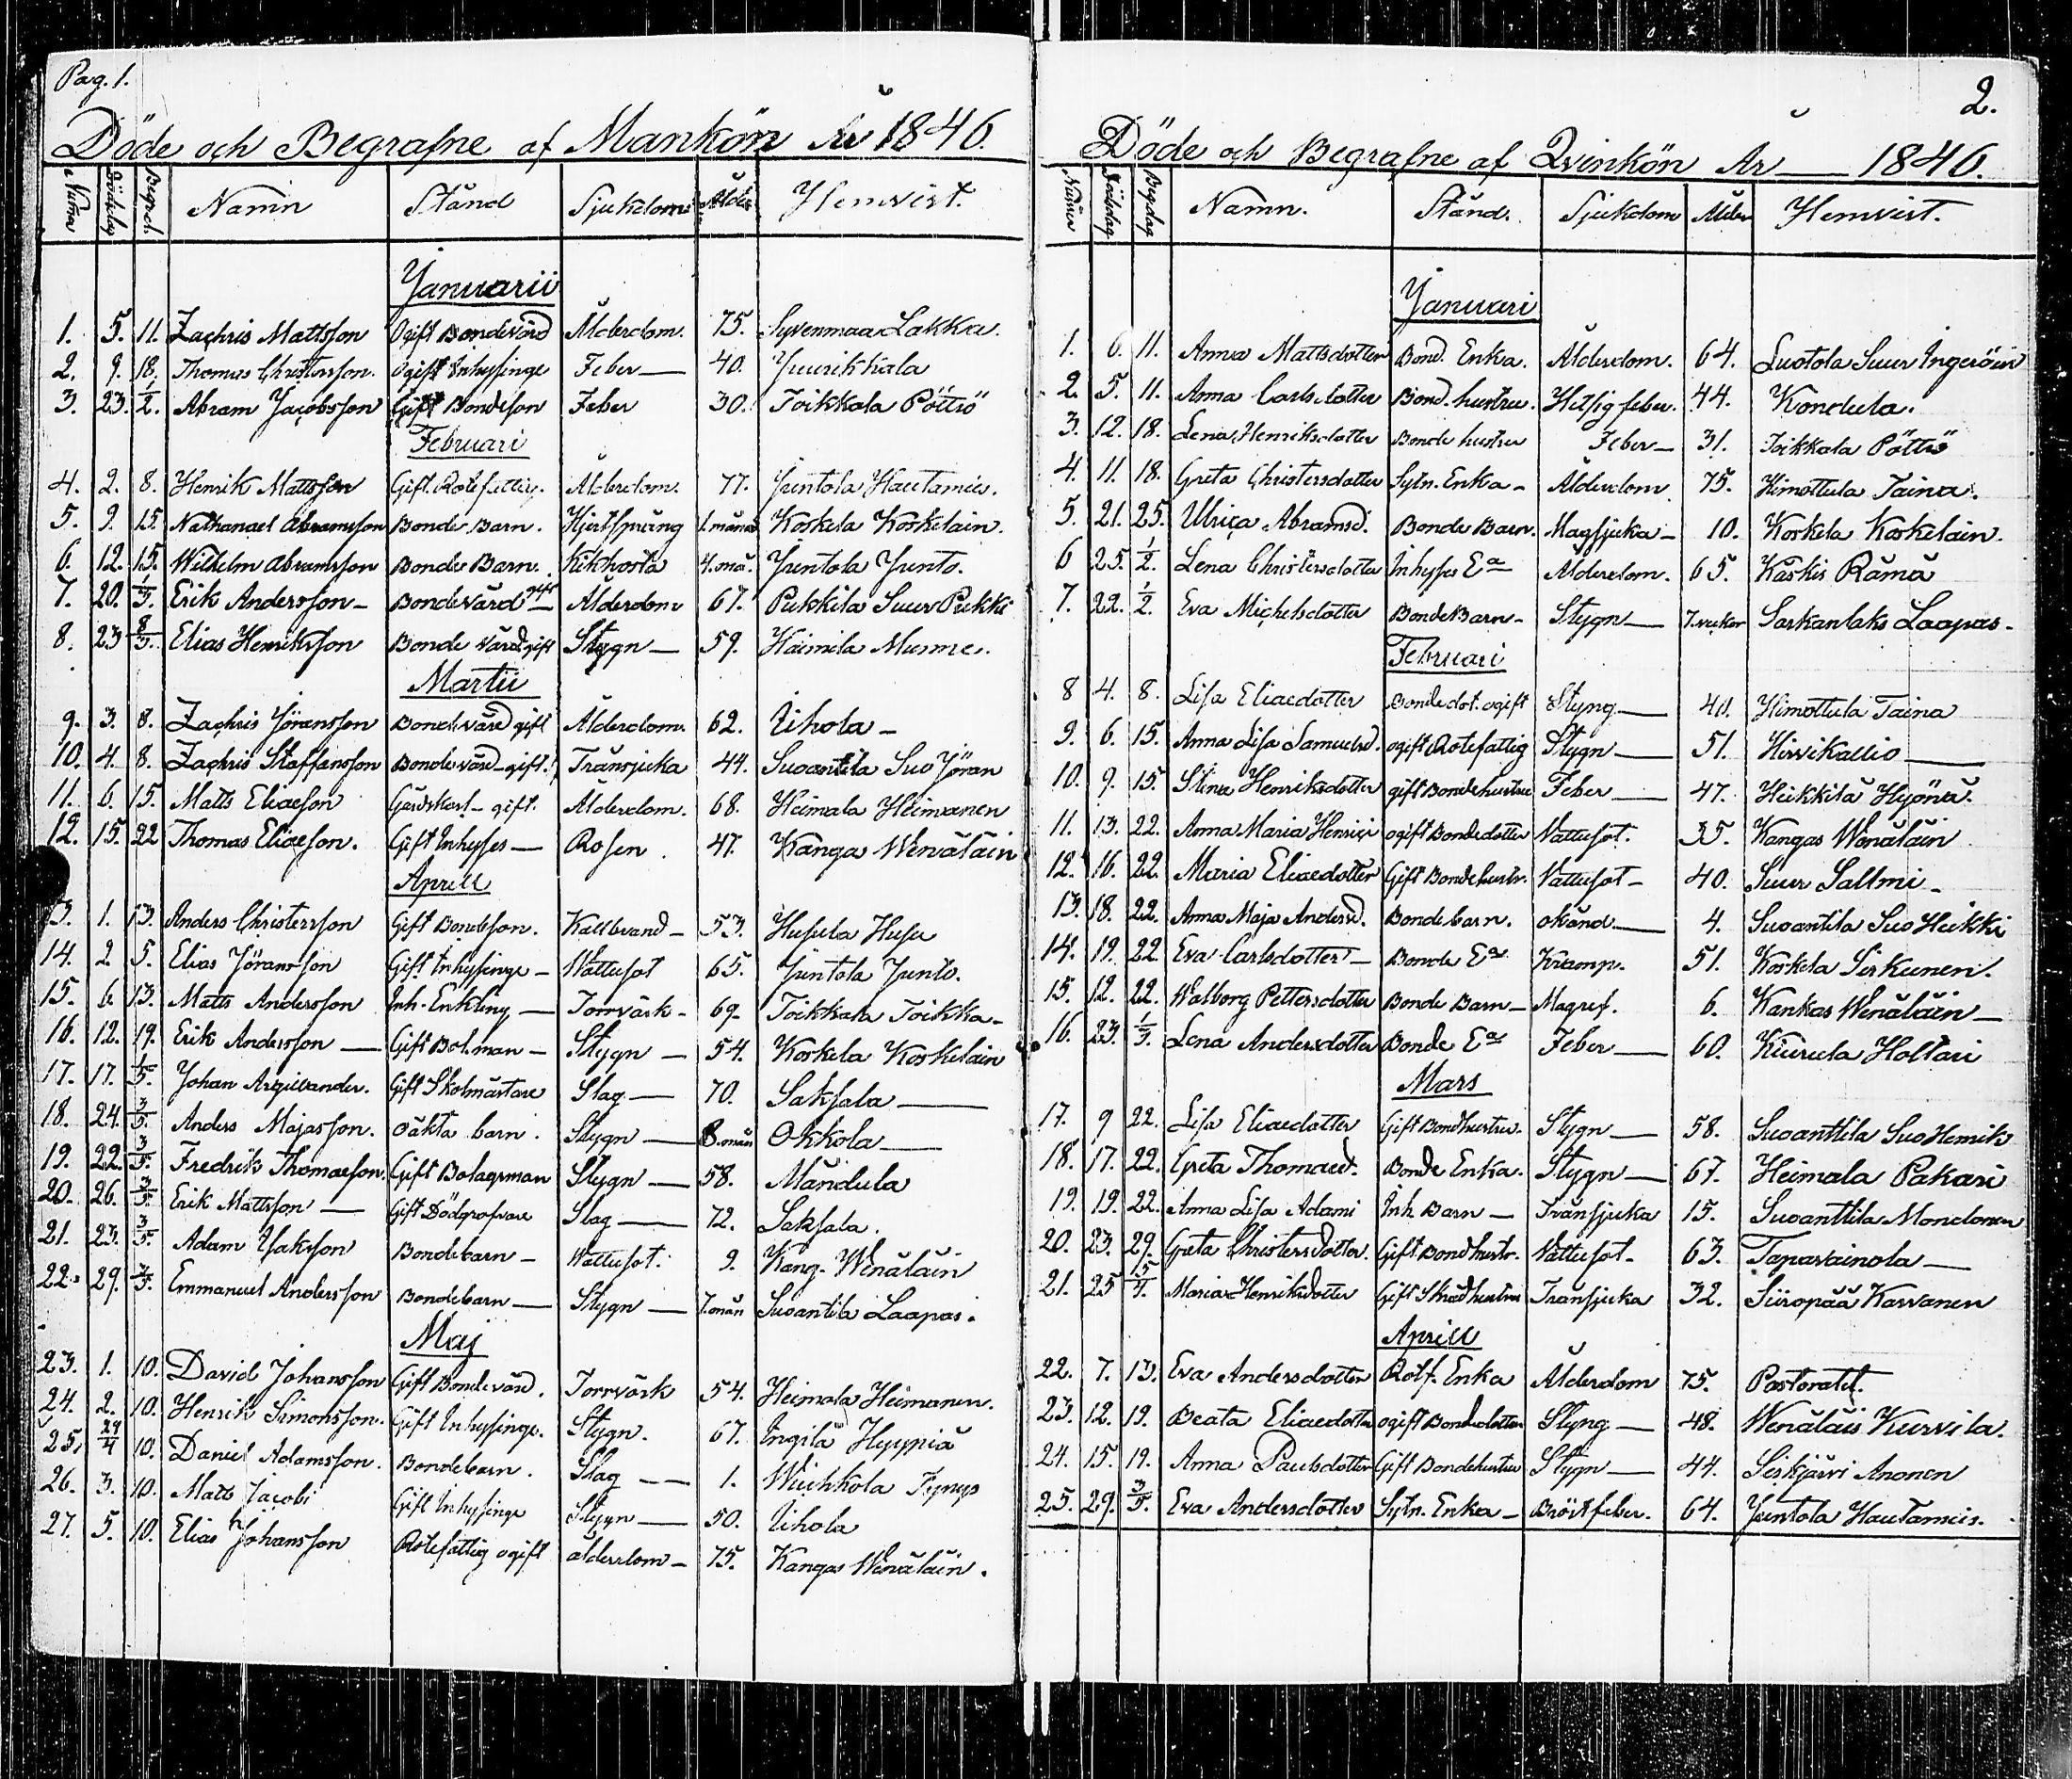 Pag. 1.
Döde och Begrafne af Mankön År 1846.
Numer Dödsdag Begrd. Namn Stånd Sjukdom Ålder Hemvist.
Januarii
1. 5. 11. Zachris Mattsson Ogift Bondevärd Ålderdom. 75. Syvenmaa Lakka.
2. 9. 18. Thomas Christersson. Ogift Inhysinge Feber — 40. Juurikkala
3. 23. 1/2. Abram Jacobsson Gift Bondeson Feber 30. Toikkala Pöttö
Februari
4. 2. 8. Henrik Mattsson Gift. Rotefattig. Ålderdom. 77. Juntola Hautamies.
5. 9. 15. Nathanael Abramsson Bonde Barn. Hjertsprång 1. månad Koskela Koskelain.
6. 12. 15. Wilhelm Abramsson Bonde Barn. Kikhosta 4. mån. Juntola Junto.
7. 20. 1/3. Erik Andersson – Bondevärd gift Ålderdom 67. Pukkila Suur Pukki
8. 23 8/3. Elias Henriksson Bonde värd gift Stygn — 59. Haimila Musme.
Martii
9. 3. 8. Zachris Jöransson Bondevärd gift Ålderdom. 62. Uhola –
10. 4. 8. Zachris Staffansson Bondevärd – gift. Trånsjuka 44. Suoanttila Suo Jöran
11. 6. 15. Matts Eliaeson Gårdskarl – gift. Ålderdom. 68. Heimala Heimanen
12. 15. 22 Thomas Eliaeson. Gift Inhyses — Rosen. 47. Kangas Wenäläin
Aprill
13. 1. 13. Anders Christersson Gift Bondeson. Kallbrand – 53. Husula Husu
14. 2 5. Elias Jöransson Gift Inhysinge – Wattusot 65. Juntola Junto.
15. 6. 13. Matts Andersson Inh. Enkling — Torrvärk – 69. Toikkala Toikka –
16. 12. 19. Erik Andersson — Gift Bol.man – Stygn — 54. Koskela Koskelain
17. 17. 1/5. Johan Argillander. Gift Skolmästare Slag — 70. Saksala —
18. 24. 3/5. Anders Majasson. Oäkta barn. Stygn — 8. mån Okkola —
19. 22. 3/5. Fredrik Thomaeson. Gift Bolagsman Stygn — 58. Mändula
20. 26. 3/5. Erik Mattsson — Gift Dödgrafvare Slag — 72. Saksala.
21. 23. 3/5. Adam Isaksson Bondebarn – Wattusot. 9. Kang. Wenäläin
22. 29. 3/5. Emmanuel Andersson Bondebarn — Stygn — 7. mån Suoantila Laapas.
Maj
23. 1. 10. David Johansson Gift Bondevärd. Torrvärk 54. Heimala Heimanen.
24. 2. 10. Henrik Simonsson. Gift Inhysinge. Stygn. 67. Ingilä Hyypiä
25. 29/4 10. Daniel Adamsson. Bondebarn. Slag — 1.
26. 3. 10. Matts Jacobi Gift Inhysinge Stygn — 50. Uhola
27. 5. 10. Elias Johansson Rotefattig ogift ålderdom – 75. Kangas Wenäläin.
2.
Döde och Begrafne af Qvinkön År — 1846.
Numer Dödsdag Begrdag Namn. Stånd. Sjukdom Ålder Hemvist.
Januari
1. 6. 11. Anna Mattsdotter Bond. Enka. Ålderdom. 64. Luotola Suur Ingeröin
2. 5. 11. Anna Carlsdotter Bond. hustru. Hitsig feber. 44. Kondula.
3. 12. 18. Lena Henriksdotter Bonde hustru Feber — 31. Toikkala Pöttö
4. 11. 18. Greta Christersdotter Sytn. Enka – Ålderdom 75. Himottula Taina.
5. 21. 25. Ulrica Abramsd. Bonde Barn. Magsjuka – 10. Koskela Koskelain.
6 25. 1/2. Lena Christersdotter Inhyses Ea Ålderdom. 65. Kaskis Rämä
7. 22. 1/2. Eva Michelsdotter Bonde Barn – Stygn — 7. veckor Sarkanlaks Laapas –
Februari
8 4. 8. Lisa Eliaedotter Bondedot. ogift Styng — 40. Himottula Taina
9. 6. 15. Anna Lisa Samuelsd. ogift Rotefattig Stygn — 51. Hirvikallio —
10. 9. 15. Stina Henriksdotter gift Bondehustru Feber — 47. Heikkilä Hyönä.
11. 13. 22. Anna Maria Henrici ogift Bondedotter Vattusot. 35. Kangas Wenäläin
12. 16. 22. Maria Eliaedotter Gift Bondehustr. Vattusot – 40. Suur Sallmi –
13. 18. 22. Anna Maja Andersd. Bondebarn. okänd — 4. Suoantila Suo Heikki
14. 19. 22 Eva Carlsdotter – Bonde Ea Kramp. 51. Koskela Sirkunen.
15. 12. 22. Walborg Pettersdotter Bonde Barn – Magref. 6. Kankas Wenäläin —
16. 23. 1/3. Lena Andersdotter Bonde Ea Feber — 60. Kiurula Holtari
Mars
17. 9 22. Lisa Eliaedotter Gift Bondhustru. Stygn — 58. Suoanttila Suo Henrik
18. 17. 22. Greta Thomaed. Bonde Enka. Stygn — 67. Heimala Pakari
19. 19. 22. Anna Lisa Adami Inh Barn — Trånsjuka 15. Suoanttila Mondonen
20. 23. 29. Greta Christersdotter. Gift Bondhustr. Vattusot – 63. Tapavainola —
21. 25 5/4. Maria Henriksdotter Gift Skrädhustru Transjuka 32. Siiropää Karvanen
Aprill
22. 7. 13. Eva Andersdotter Rotf. Enka Ålderdom 75. Pastoratet.
23. 12. 19. Beata Eliaedotter ogift Bondedotter Styng — 48. Wenäläis Kurvila.
24. 15. 19. Anna Paulsdotter Gift Bondehustru Stygn — 44. Sirkjärvi Anonen
25. 29. 3/5. Eva Andersdotter Sytn. Enka – Bröstfeber. 64. Juntola Hautamies.